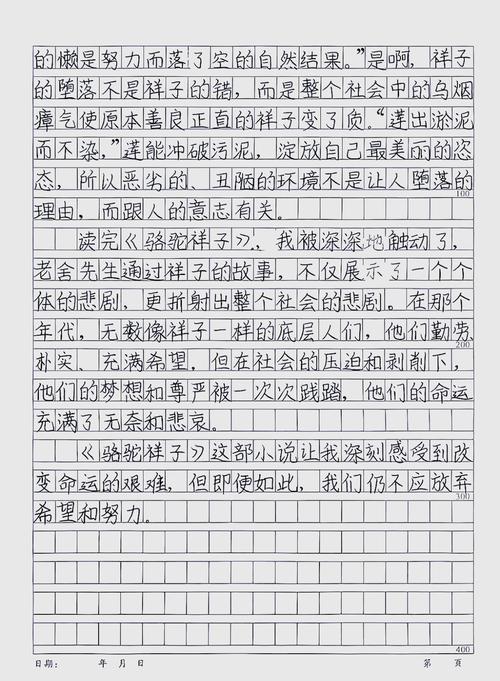 的懒是努力而落了空的自然结果。”是啊，祥子
的堕落不是祥子的错，而是整个社会中的乌烟
瘴气使原本善良正直的祥子变了质。“莲出淤泥
而不染，”莲能冲破污泥，淀放自己最美丽的恣
态，所以恶劣的、丑陋的环境不是让人堕落的
100
理由，而跟人的意志有关。
读完《骆驼祥子》，我被深深地触动了，
老舍先生通过祥子的故事，不仅展示了一个个
体的悲剧，更折射出整个社会的悲剧。在那个
年代，无数像祥子一样的底层人们，他们勤劳
200
朴实、充满希望，但在社会的压迫和剥削下，
他们的梦想和尊严被一次次践踏，他们的命运
充满了无奈和悲哀。
《骆驼祥子》这部小说让我深刻感受到改
变命运的艰难，但即便如此，我们仍不应放弃
300
希望和努力。
400
日期： 年 月 日 第 页